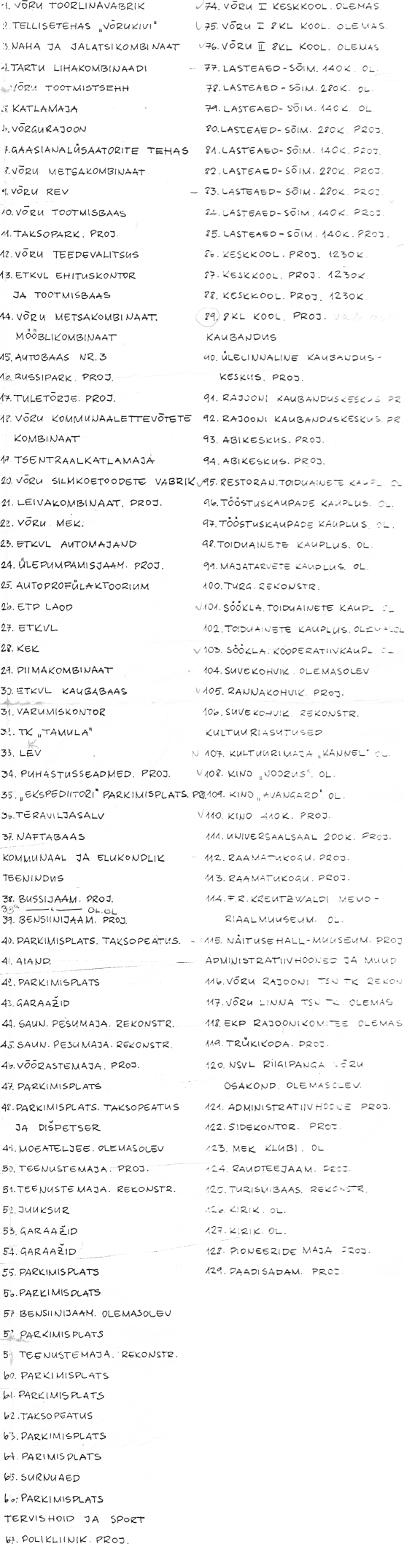 1. VÕRU TOORLINAVABRIK
2. TELLISETEHAS „VÕRUKIVI"
3. NAHA JA JALATSIKOMBINAAT
4. TARTU LIHAKOMBINAADI
VÕRU TOOTMISTSEHH
5. KATLAMAJA
6. VÕRGURAJOON
7. GAASIANALÜSAATORITE TEHAS
8. VÕRU METSAKOMBINAAT
9. VÕRU REV
10. VÕRU TOOTMISBAAS
11. TAKSOPARK. PROJ.
12. VÕRU TEEDEVALITSUS
13. ETKVL EHITUSKONTOR
JA TOOTMISBAAS
14. VÕRU METSAKOMBINAAT.
MÖÖBLIKOMBINAAT
15. AUTOBAAS NR.3
16. BUSSIPARK. PROJ.
17. TULETÕRJE. PROJ.
18. VÕRU KOMMUNAALETTEVÕTETE
KOMBINAAT
19. TSENTRAALKATLAMAJA
20. VÕRU SILMKOETOODETE VABRIK
21. LEIVAKOMBINAAT. PROJ.
22. VÕRU MEK.
23. ETKVL AUTOMAJAND
24. ÜLEPUMPAMISJAAM. PROJ.
25. AUTOPROFÜLAKTOORIUM
26. ETP LAOD
27. ETKVL
28. KEK
29. PIIMAKOMBINAAT
30. ETKVL KAUGABAAS
31. VARUMISKONTOR
32. TK „TAMULA"
33. LEV
34. PUHASTUSSEADMED. PROJ.
35. „EKSPEDIITORI" PARKIMISPLATS. PR
36. TERAVILJASALV
37. NAFTABAAS
KOMMUNAAL JA ELUKONDLIK
TEENINDUS
38. BUSSIJAAM. PROJ.
38ᵃ —"— OL.OL
39. BENSIINIJAAM. PROJ.
40. PARKIMISPLATS. TAKSOPEATUS.
41. AIAND
42. PARKIMISPLATS
43. GARAAŽID
44. SAUN. PESUMAJA. REKONSTR.
45. SAUN. PESUMAJA. REKONSTR.
46. VÕÕRASTEMAJA. PROJ.
47. PARKIMISPLATS
48. PARKIMISPLATS. TAKSOPEATUS
JA DISPETSER
49. MOEATELJEE. OLEMASOLEV
50. TEENUSTEMAJA. PROJ.
51. TEENUSTEMAJA. REKONSTR.
52. JUUKSUR
53. GARAAŽID
54. GARAAŽID
55. PARKIMISPLATS
56. PARKIMISPLATS
57 BENSIINIJAAM. OLEMASOLEV
58 PARKIMISPLATS
59 TEENUSTEMAJA. REKONSTR.
60. PARKIMISPLATS
61. PARKIMISPLATS
62. TAKSOPEATUS
63. PARKIMISPLATS
64. PARIMISPLATS
65. SURNUAED
66. PARKIMISPLATS
TERVISHOID JA SPORT
67. POLIKLIINIK. PROJ.
74. VÕRU I KESKKOOL. OLEMAS
75. VÕRU I 8KL KOOL. OLEMAS
76. VÕRU II 8KL KOOL. OLEMAS
77. LASTEAED-SÕIM. 140K. OL.
78. LASTEAED-SÕIM. 280K. OL
79. LASTEAED-SÕIM. 140K. OL
80. LASTEAED-SÕIM. 280K. PROJ.
81. LASTEAED-SÕIM. 140K. PROJ.
82. LASTEAED-SÕIM. 280K. PROJ.
83. LASTEAED-SÕIM. 280K. PROJ.
84. LASTEAED-SÕIM. 140K. PROJ.
85. LASTEAED-SÕIM. 140K. PROJ.
86. KESKKOOL. PROJ. 1230K.
87. KESKKOOL. PROJ. 1230K
88. KESKKOOL. PROJ. 1230K
89. 8KL KOOL. PROJ.
KAUBANDUS
90. ÜLELINNALINE KAUBANDUS-
KESKUS. PROJ.
91. RAJOONI KAUBANDUSKESKUS PR
92. RAJOONI KAUBANDUSKESKUS PR
93. ABIKESKUS. PROJ.
94. ABIKESKUS. PROJ.
95. RESTORAN. TOIDUAINETE KAUPL OL
96. TÖÖSTUSKAUPADE KAUPLUS. OL.
97. TÖÖSTUSKAUPADE KAUPLUS. OL.
98. TOIDUAINETE KAUPLUS. OL.
99. MAJATARVETE KAUPLUS. OL.
100. TURG. REKONSTR.
101. SÖÖKLA. TOIDUAINETE KAUPL OL
102. TOIDUAINETE KAUPLUS. OLEMASOL
103. SÖÖKLA. KOOPERATIIVKAUPL OL
104. SUVEKOHVIK. OLEMASOLEV
105. RANNAKOHVIK. PROJ.
106. SUVEKOHVIK. REKONSTR.
KULTUURIASUTUSED
107. KULTUURIMAJA „KANNEL" OL
108. KINO „NOORUS". OL.
109. KINO „AVANGARD" OL.
110. KINO 410K. PROJ.
111. UNIVERSAALSAAL 200K. PROJ.
112. RAAMATUKOGU. PROJ.
113. RAAMATUKOGU. PROJ.
114. F.R. KREUTZWALDI MEMO-
RIAALMUUSEUM. OL.
115. NÄITUSEHALL-MUUSEUM. PROJ
ADMINISTRATIIVHOONED JA MUUD
116. VÕRU RAJOONI TSN TK REKON
117. VÕRU LINNA TSN TK. OLEMAS
118. EKP RAJOONIKOMITEE OLEMAS
119. TRÜKIKODA. PROJ.
120. NSVL RIIGIPANGA VÕRU
OSAKOND. OLEMASOLEV.
121. ADMINISTRATIIVHOONE PROJ.
122. SIDEKONTOR. PROJ.
123. MEK KLUBI. OL
124. RAUDTEEJAAM. PROJ.
125. TURISMIBAAS. REKONSTR.
126. KIRIK. OL.
127. KIRIK. OL.
128. PIONEERIDE MAJA PROJ.
129. PAADISADAM. PROJ